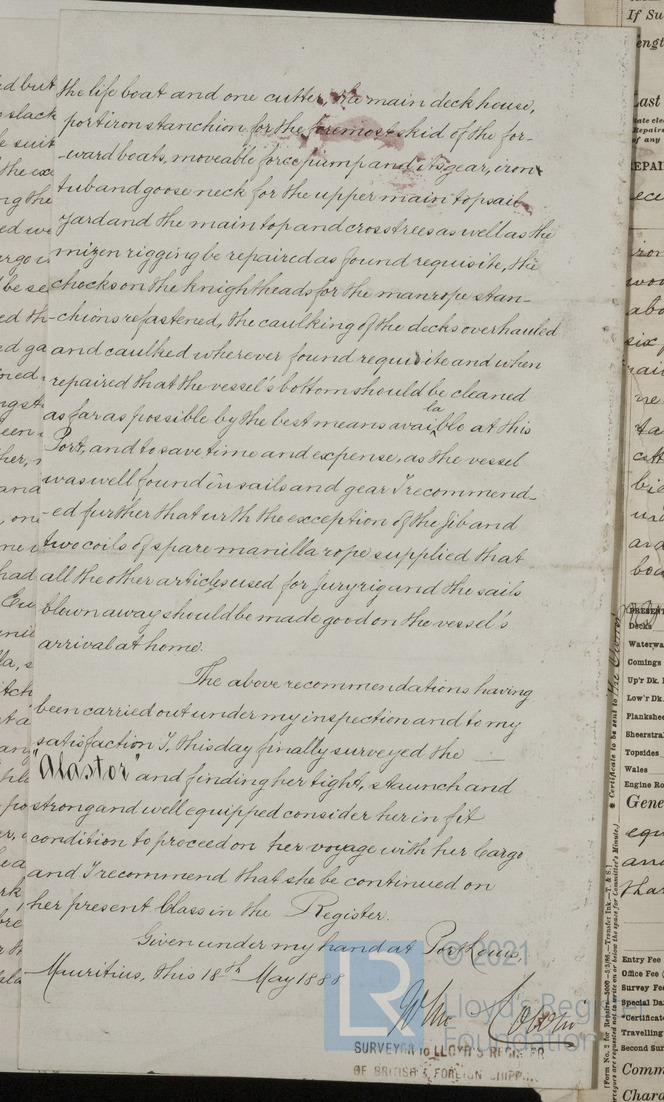 the life boat and one cutter, the main deck house,
port iron stanchion for the foremost skid of the for-
-ward boats, moveable force pump and its gear, iron
tub and goose neck for the upper main topsail
yard and the main top and crosstrees as well as the
mizen rigging be repaired as found requisite, the
chocks on the knightheads for the manrope stan-
-chions refastened, the caulking of the decks overhauled
and caulked wherever found requisite and when
repaired that the vessel's bottom should be cleaned
la
as far as possible by the best means avaible at this
Port, and to save time and expense, as the vessel
was well found in sails and gear I recommend-
-ed further that with the exception of the Jib and
two coils of spare manilla rope supplied that
all the other articles used for Juryrig and the sails
blown away should be made good on the vessel's
arrival at home.
The above recommendations having
been carried out under my inspection and to my
satisfaction I, this day finally surveyed the
"Alastor" and finding her tight, staunch and
strong and well equipped consider her in fit
condition to proceed on her voyage with her Cargo
and I recommend that she be continued on
her present Class in the Register.
Given under my hand at Port Louis,
Mauritius, this 18th May 1888
© 2021
LR
Lloyd's Register
Foundation
SURVEYOR to LLOYD'S REGISTER
OF BRITISH & FOREIGN SHIPP
If Su
Last
REPAI
* Certificate to be sent to the Owner
PRESENT
Decks
Waterwa
Comings
Up'r Dk.
Low'r Dk.
Planksheer
Sheerstra
Topsides
Wales
Engine Ro
Gene
equ
and
tha
Entry Fee
Office Fee
Survey Fee
Special Da
Certificate
Travelling
Second Sur
Comm
Chara